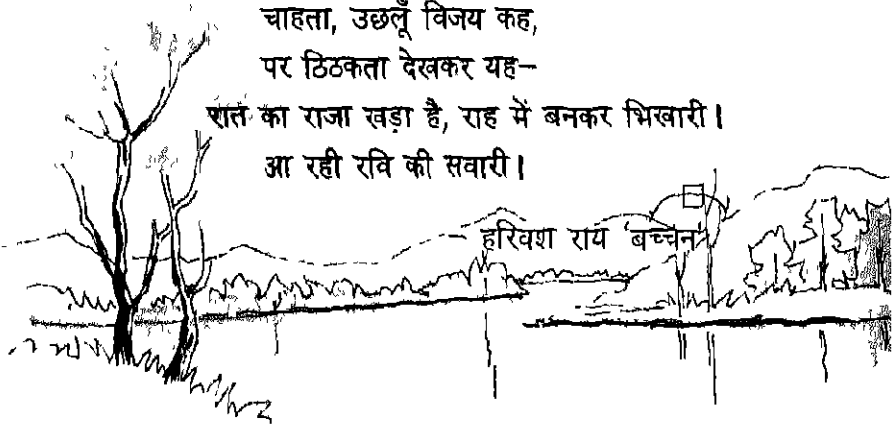 चाहता, उछलूँ विजय कह,
पर ठिठकता देखकर यह—
रात का राजा खड़ा है, राह में बनकर भिखारी।
आ रही रवि की सवारी।
हरिवश राय 'बच्चन'